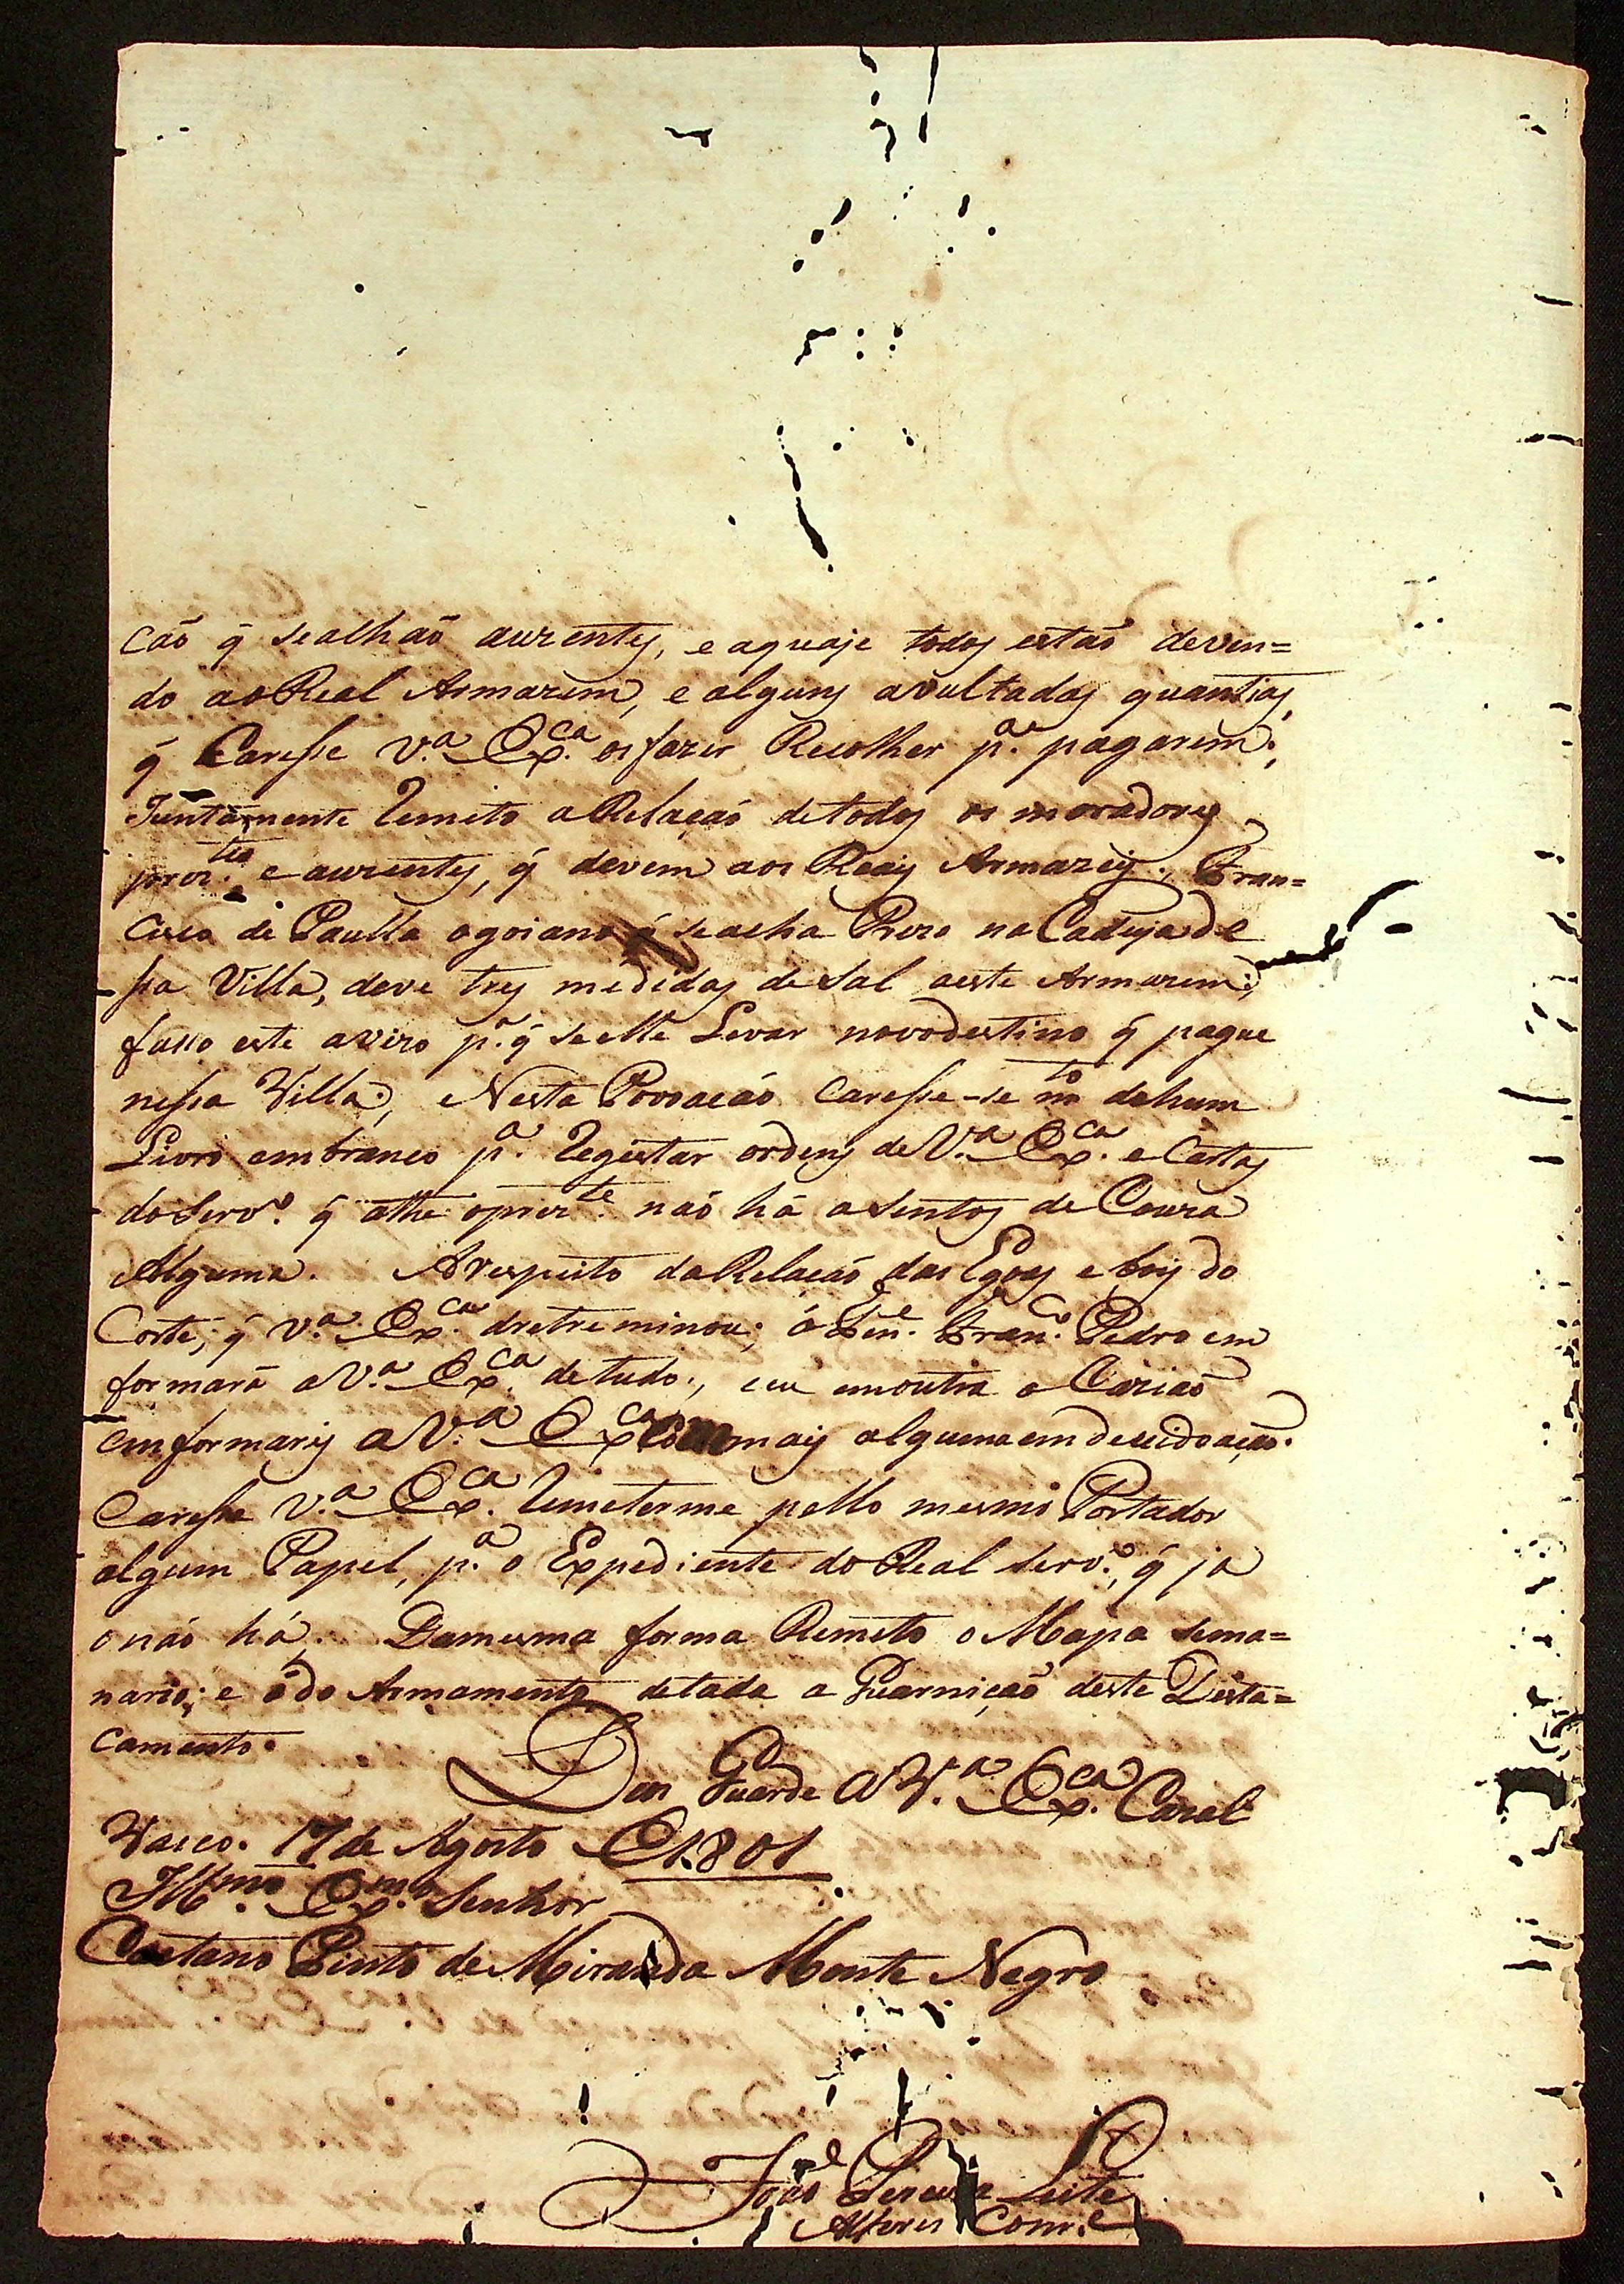 cáo q̃ se alhaõ auzentes, e aquaje todos estaõ deven=
do ao Real Armazem, e alguns avultadas quantias,
q̃ Caresse V.ª Ex.ca os fazer Recolher p.ª pagarem;
Juntamente Remeto a Relaçaõ de todos os moradores
prez.tes e auzentes, q̃ devem aos Reais Armazeis. Fran=
cisco de Paulla o goiano q̃ se acha Prezo na Cadeya de
ssa Villa, deve tres medidas de sal a este Armazem;
fasso este avizo p.ª q̃ se elle Levar novo destino q̃ pague
nessa Villa, Nesta Povoacáo caresse-se m.to de hum
Livro em branco p.ª Registar ordens de V.ª Ex.ca e Cartas
do Serv.º q̃ athe o prez.te naó há asentos de Couza
Alguma. A respeito da Relacaó das Egoas e bois do
Corte, q̃ V.ª Ex.ca dretreminou; ó Ten.e Fran.co Pedro em
formará a V.ª Ex.ca de tudo, e eu em outra o Caziaó
emformarey a V.ª Ex.ca com mais alguma
Caresse V.ª Ex.ca Remeterme pello mesmo Portador
algum Papel, p.ª o Expediente do Real Serv.º, q̃ ja
o náo há. Da mesma forma Remeto o Mapa Sema=
nario; e ó do Armamento de tada a Guarniçaõ deste Desta=
camento.
Deos Guarde a V.ª Ex.ca Cazal
Vasco. 17 de Agosto de 1801
Ill.mo Ex.mo Senhor
Caetano Pinto de Miranda Monte Negro
Joaõ Pereira Leite
Alferes Com.e